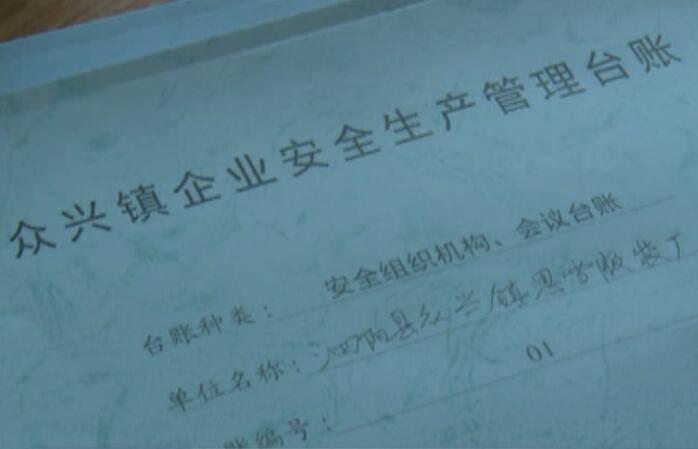 众兴镇企业安全生产管理台账
台账种类：安全组织机构、会议台账
单位名称：泗阳县众兴镇思学服装厂
账编号：01